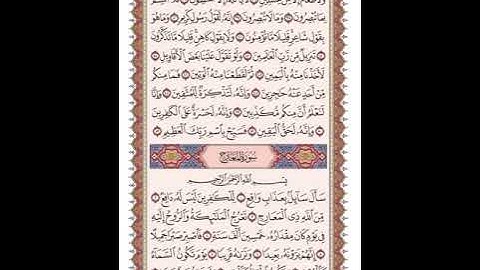 بِمَا تُبْصِرُونَ ۝ وَمَا لَا تُبْصِرُونَ ۝ إِنَّهُۥ لَقَوْلُ رَسُولٍ كَرِيمٍ ۝ وَمَا هُوَ
بِقَوْلِ شَاعِرٍ قَلِيلًا مَّا تُؤْمِنُونَ ۝ وَلَا بِقَوْلِ كَاهِنٍ قَلِيلًا مَّا تَذَكَّرُونَ
۝ تَنزِيلٌ مِّن رَّبِّ ٱلْعَٰلَمِينَ ۝ وَلَوْ تَقَوَّلَ عَلَيْنَا بَعْضَ ٱلْأَقَاوِيلِ ۝
لَأَخَذْنَا مِنْهُ بِٱلْيَمِينِ ۝ ثُمَّ لَقَطَعْنَا مِنْهُ ٱلْوَتِينَ ۝ فَمَا مِنكُم
مِّنْ أَحَدٍ عَنْهُ حَٰجِزِينَ ۝ وَإِنَّهُۥ لَتَذْكِرَةٌ لِّلْمُتَّقِينَ ۝ وَإِنَّا
لَنَعْلَمُ أَنَّ مِنكُم مُّكَذِّبِينَ ۝ وَإِنَّهُۥ لَحَسْرَةٌ عَلَى ٱلْكَٰفِرِينَ
۝ وَإِنَّهُۥ لَحَقُّ ٱلْيَقِينِ ۝ فَسَبِّحْ بِٱسْمِ رَبِّكَ ٱلْعَظِيمِ ۝
سُورَةُ المَعَارِجِ
بِسْمِ ٱللَّهِ ٱلرَّحْمَٰنِ ٱلرَّحِيمِ
سَأَلَ سَآئِلٌۢ بِعَذَابٍ وَاقِعٍ ۝ لِّلْكَٰفِرِينَ لَيْسَ لَهُۥ دَافِعٌ ۝
مِّنَ ٱللَّهِ ذِى ٱلْمَعَارِجِ ۝ تَعْرُجُ ٱلْمَلَٰٓئِكَةُ وَٱلرُّوحُ إِلَيْهِ
فِى يَوْمٍ كَانَ مِقْدَارُهُۥ خَمْسِينَ أَلْفَ سَنَةٍ ۝ فَٱصْبِرْ صَبْرًا جَمِيلًا
۝ إِنَّهُمْ يَرَوْنَهُۥ بَعِيدًا ۝ وَنَرَىٰهُ قَرِيبًا ۝ يَوْمَ تَكُونُ ٱلسَّمَآءُ